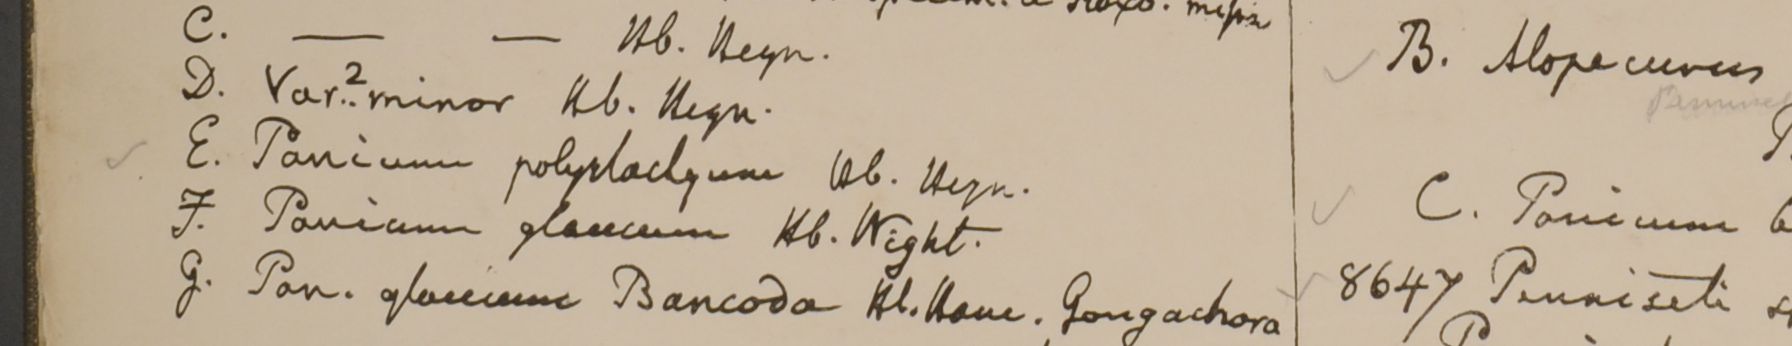 C. — — Hb. Heyn.
D. Var. 2 minor Hb. Heyn.
E. Panicum polystachyum Hb. Heyn.
F. Panicum glaucum Hb. Wight.
G. Pan. glaucum Bancoda Hb. Ham. Gongachora
B. Alopecurus
C. Panicum
8647 Penniseti